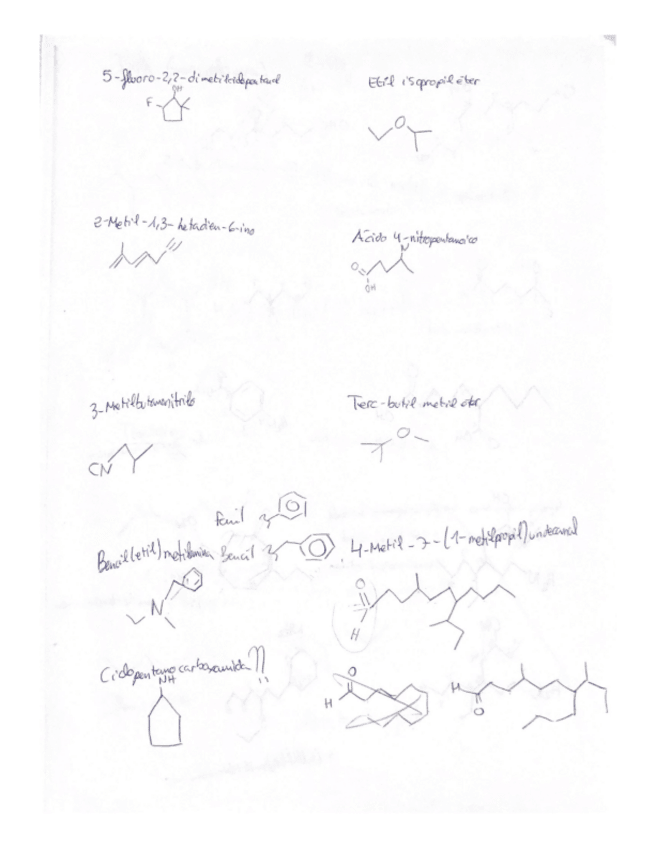 5-fluoro-2,2-dimetilciclopentanol
OH
F
Etil isopropil éter
O
2-Metil-1,3-hetadien-6-ino
Ácido 4-nitropentanoico
N
O
OH
3-Metilbutanonitrilo
CN
Terc-butil metil eter
O
Fenil
Bencil(etil)metilamina
Bencil
N
4-Metil-7-(1-metilpropil)undecanal
O
H
Ciclopentanocarboxamida ??
NH
O
H
H
O